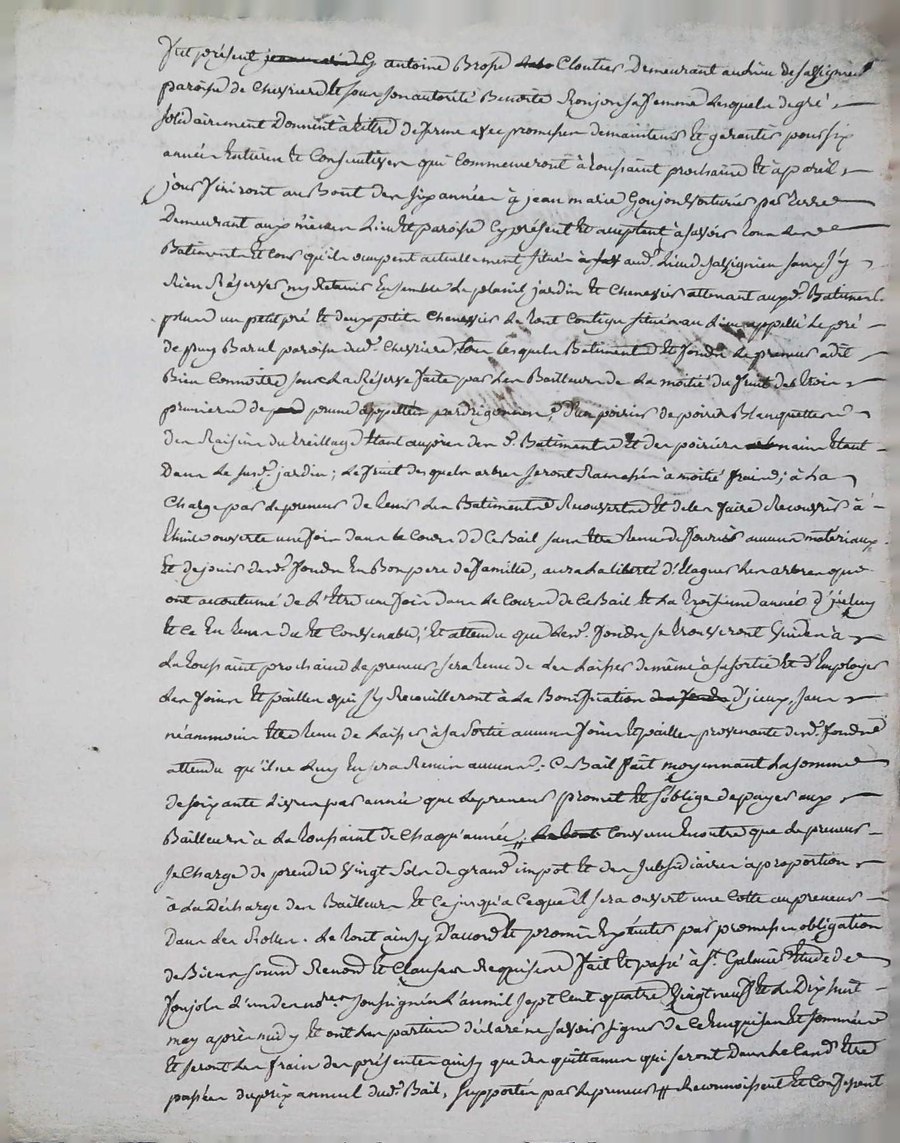 fut présent antoine Brosse Cloutier Demeurant au lieu de
paroisse de Chevrieres Et sous son autorité Benoite Ronjon sa femme Lesquels de gré
solidairement Donnent à titre de ferme avec promesse de maintenir Et garantir pour six
années Entieres Et Consecutives qui Commenceront à toussaint prochaine Et à pareil
jour finiront au Bout des six années à jean marie Goujon voiturier par terre
Demeurant aux mêmes Lieu Et paroisse Cy présent Et acceptant à savoir tous Les
Batiments Et Cour qu'ils occupent actuellement situés aud. Lieu de sans s'y
Rien Réserver ny Retenir Ensemble Le jardin Et Chenevier attenant auxd. Batiments
plus un petit pré Et deux petits Cheneviers Le tout Contigu situés au Lieu appellé Le pré
de paroisse dud. Chevrieres, tous lesquels Batiments Et fonds Le preneur a dit
Bien Connoitre sous La Réserve faite par Les Bailleurs de La moitié du fruit des trois
pruniers de prunes appellées perdrigonnes, d'un poirier de poires Blanquettes
des Raisins du treillage Etant auprès des d. Batiments Et des poiriers nains Etant
Dans Le susd. jardin; Le fruit desquels arbres seront Ramassés à moitié fraix; à La
Charge par Le preneur de tenir Les Batiments Recouverts Et de les faire Recouvrir à
thuile ouverte une fois dans le Cours de Ce Bail sans Etre tenu de fournir aucuns matériaux
Et de jouir desd. fonds En Bon pere de famille, aura La liberté d'Elaguer Les arbres qui
ont accoutumé de L'Etre une fois dans Le Cours de Ce Bail Et La troisieme année d'jceluy
Et Ce En tems du Et Convenable; Et attendu que Lesd. fonds se trouveront Vuides à
La toussaint prochaine Le preneur sera tenu de Les Laisser de même à sa sortie Et d'Employer
Les foins Et pailles qui s'y Recueilleront à La Bonification d'jceux, sans
néanmoins Etre tenu de Laisser à sa sortie aucuns foins Et pailles provenants desd. fonds
attendu qu'il ne Luy En sera Remis aucuns. Ce Bail fait moyennant La somme
de soixante Livres par année que Le preneur promet Et s'oblige de payer aux
Bailleurs à La toussaint de Chaqu'année, Convenu Encontre que Le preneur
se Charge de prendre Vingt sols de grand impot Et des subsidiaires à proportion
à La Décharge des Bailleurs Et Ce jusqu'à Ce que il sera ouvert une Cotte au preneur
Dans Les Rolles. Le tout ainsy D'accord Et promis Exécuter par promesse obligation
de Biens soumis Renonc. Et Clauses Requises fait Et passé à St. Galmier Etude de
fonjols L'un des nores. soussignés L'an mil sept Cent quatre Vingt neuf Et Le Dix huit
may après midy Et ont Les parties déclaré ne savoir signer de Ce Enquises Et sommées
Et seront Les frais des présentes ainsy que des quittances qui seront Dans Le Cas d'Etre
passées du prix annuel dud. Bail, supportés par Le preneur # Reconnoissent Et Confessent